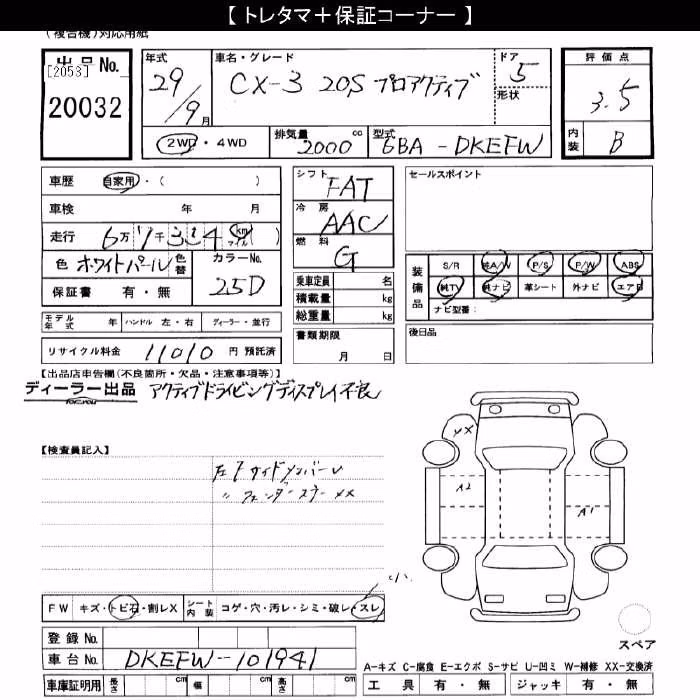 【 トレタマ＋保証コーナー 】
(複合機)対応用紙
出品No.
[2053]
20032
年式 29/9月
車名・グレード CX-3 20S プロアクティブ
ドア 5
形状
評価点 3.5
内装 B
2WD・4WD
排気量 2000 cc
型式 6BA-DKEFW
車歴 自家用・( )
車検 年 月
走行 6万 7千 334 km マイル ( )
色 ホワイトパール 色替
カラーNo. 25D
保証書 有・無
モデル年式 年 ハンドル 左・右 ディーラー・並行
リサイクル料金 11010 円 預託済
シフト FAT
冷房 AAC
燃料 G
乗車定員 名
積載量 kg
総重量 kg
書類期限
月 日
セールスポイント
装備品
S/R 純A/W P/S P/W ABS
純TV 純ナビ 革シート 外ナビ エアB
ナビ型番:
後日品
【出品店申告欄(不良箇所・欠品・注意事項等)】
ディーラー出品 アクティブドライビングディスプレイ不良
【検査員記入】
XX
A2
A1
FW キズ・トビ石・割レX シート内装 コゲ・穴・汚レ・シミ・破レ・スレ
小
登録No.
車台No. DKEFW-101941
車庫証明用 長さ cm 幅 cm 高さ cm
スペア
A-キズ C-腐食 E-エクボ S-サビ U-凹ミ W-補修 XX-交換済
工具 有・無 ジャッキ 有・無